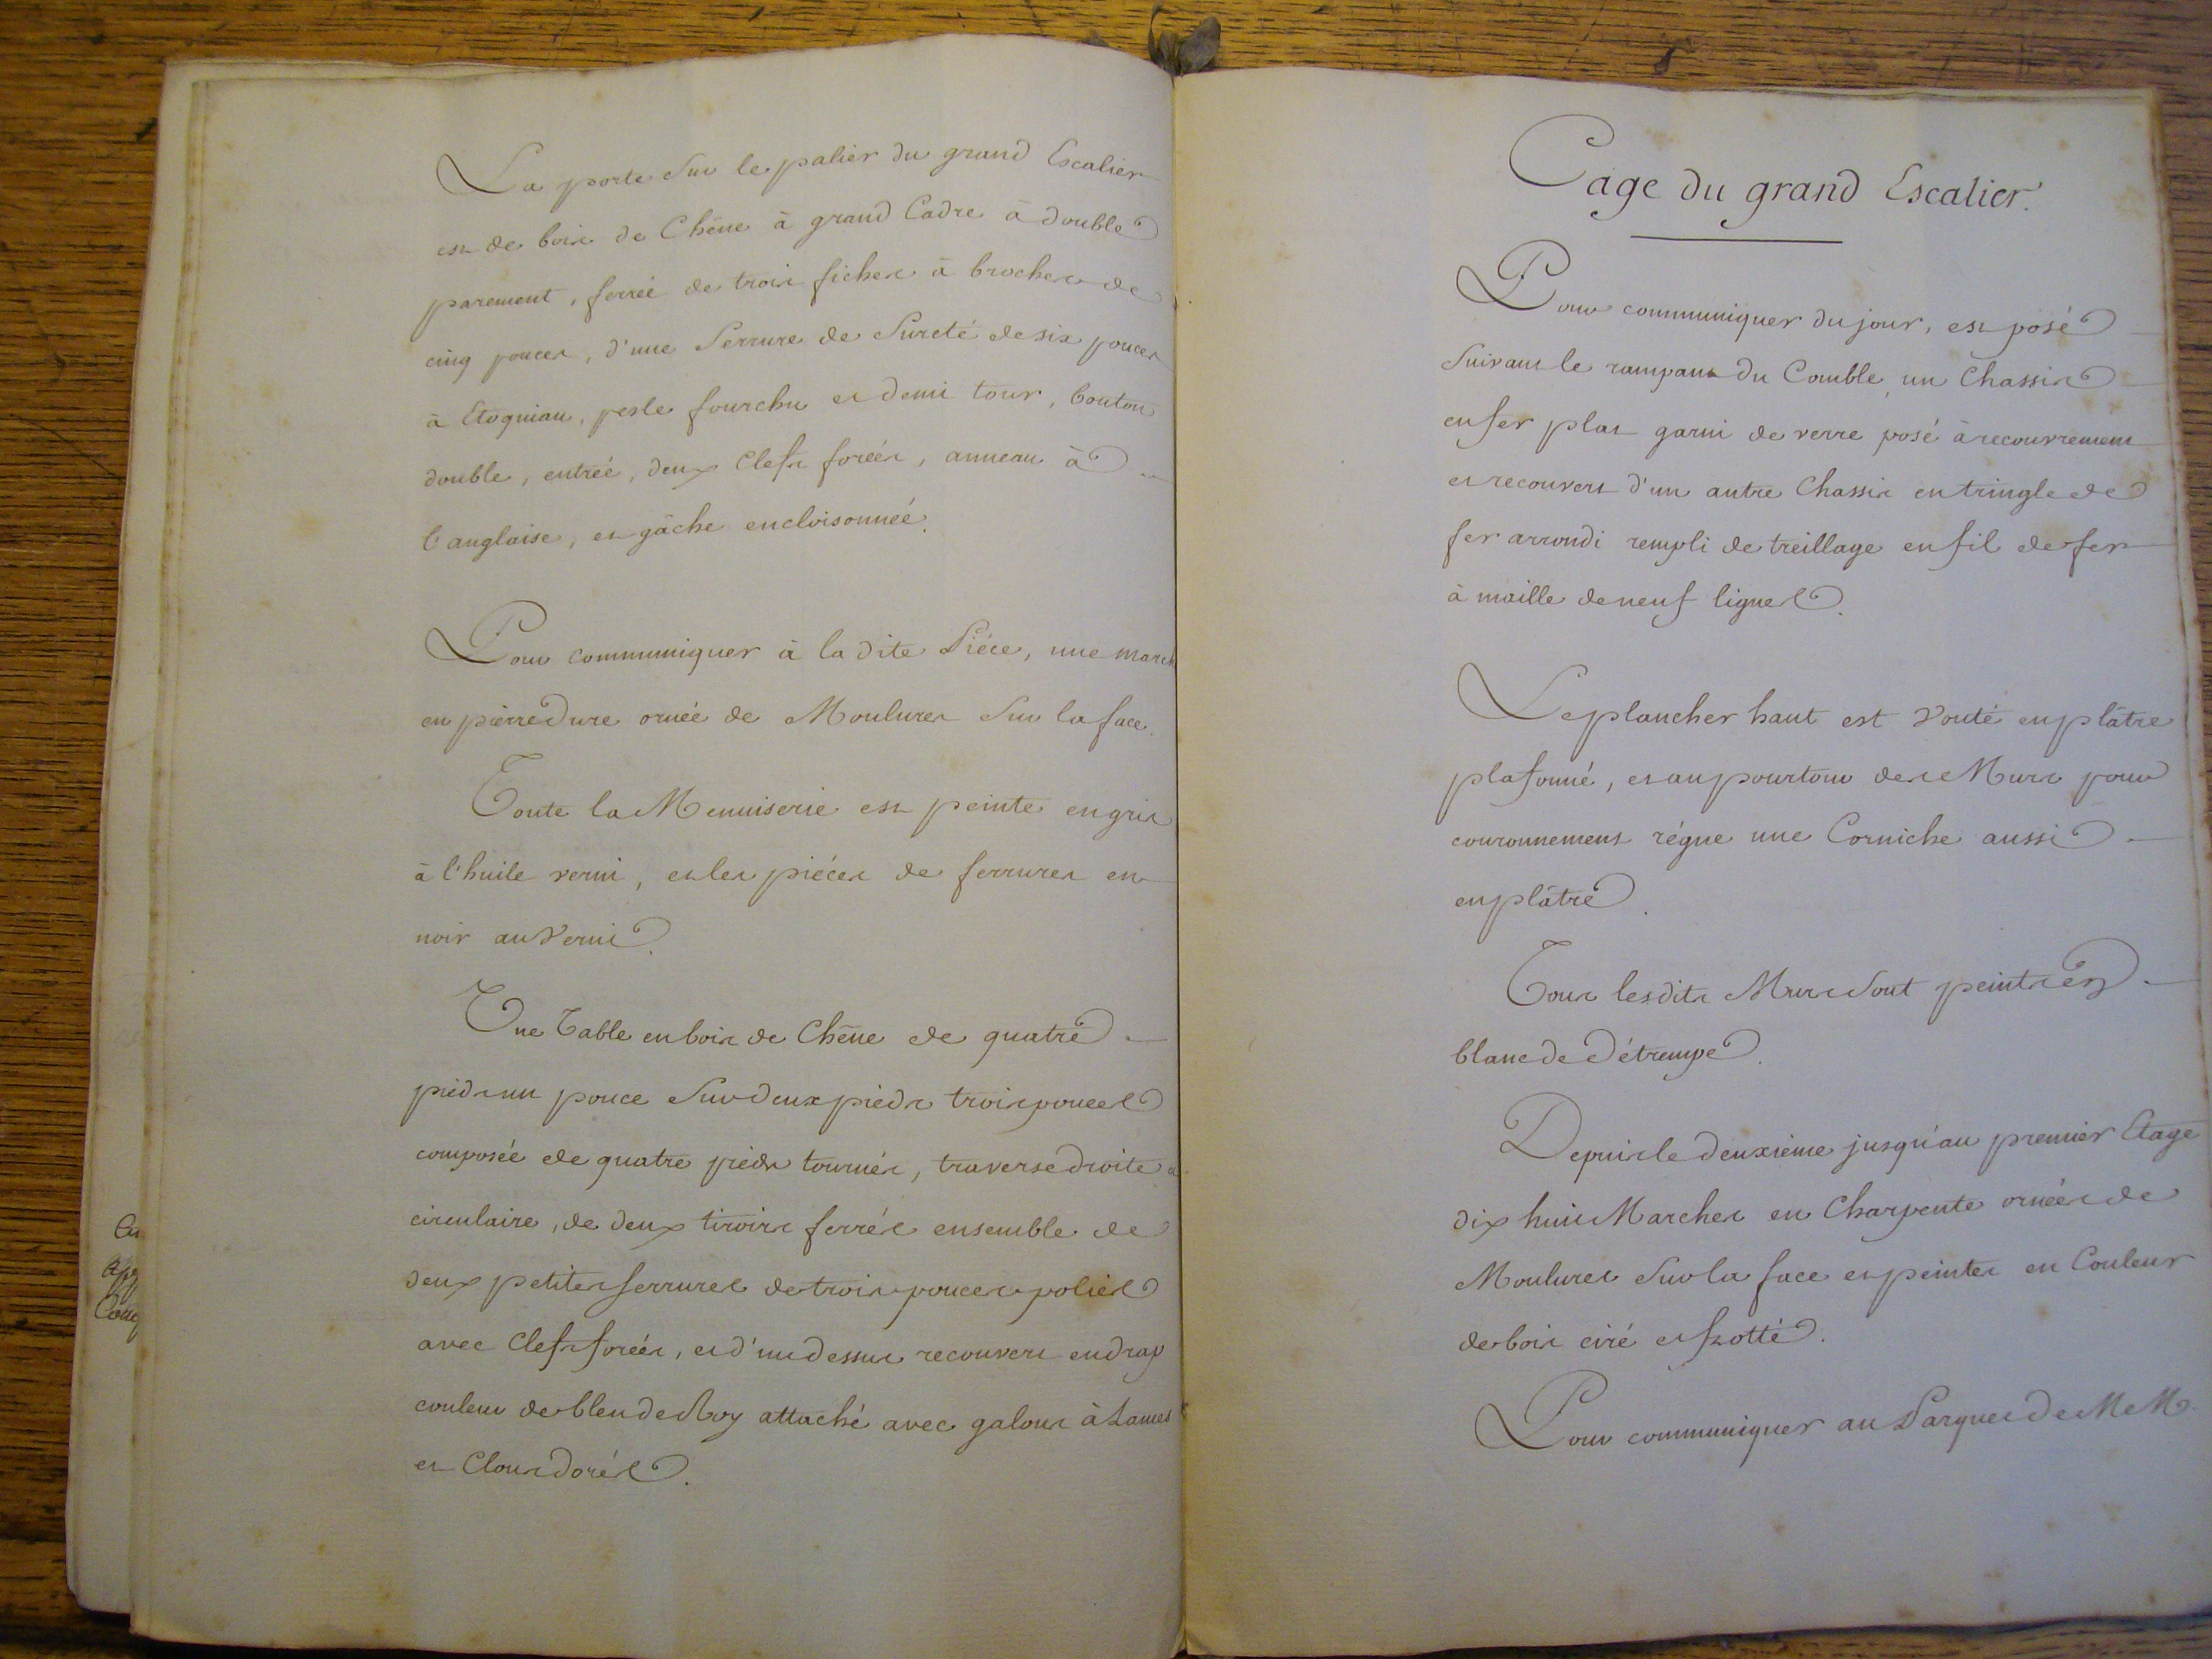 La porte sur le palier du grand Escalier
est de bois de Chêne à grand Cadre à double
parement, ferrée de trois fiches à broches de
cinq pouces, d'une Serrure de Sureté de six pouces
à Etoquiau, pesle fourchu et demi tour, bouton
double, entrée, deux Clefs forées, anneau à
l'anglaise, et gâche encloisonnée.
Pour communiquer à la dite Piéce, une march
en pierre dure ornée de Moulures Sur la face.
Toute la Menuiserie est peinte en gris
à l'huile verni, et les piéces de ferrures en
noir au Verni.
Une Table en bois de Chêne de quatre
pieds un pouce Sur deux pieds trois pouces
composée de quatre pieds tournés, traverse droite
circulaire, de deux tiroirs ferrés ensemble de
deux petites serrures de trois pouces polies
avec Clefs forées, et d'un dessus recouvert en drap
couleur de bleu de Roy attaché avec galons à Lames
et Clous dorés.
Cage du grand Escalier.
Pour communiquer du jour, est posé
Suivant le rampant du Comble un Chassis
en fer plat garni de verre posé à recouvrement
et recouvert d'un autre Chassis en tringle de
fer arrondi rempli de treillage en fil de fer
à maille de neuf lignes.
Le plancher haut est Vouté en plâtre
plafonné, et au pourtour des Murs pour
couronnement régne une Corniche aussi
en plâtre.
Tous lesdits Murs sont peints en
blanc de Détrempe.
Depuis le deuxieme jusqu'au premier Etage
dix huit Marches en Charpente ornées de
Moulures Sur la face et peintes en Couleur
de bois ciré et frotté.
Pour communiquer au Parquet de M. M.